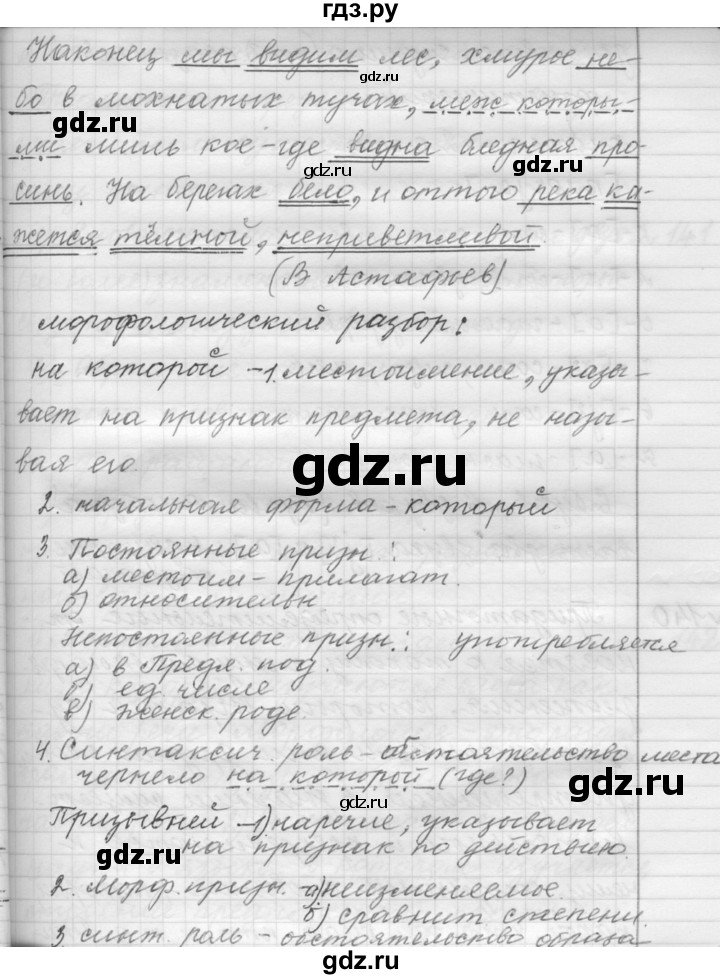 гдз.ру
Наконец мы видим лес, хмурое не-
gdz.ru
бо в мохнатых тучах, меж которы-
gdz.ru
gdz.ru
ми лишь кое-где видна бледная про-
gdz.ru
синь. На берегах бело, и оттого река ка-
жется тёмной, неприветливой.
gdz.ru
(В Астафьев)
морофологический разбор:
gdz.ru
на которой - 1. местоимение, указы-
вает на признак предмета, не назы-
вая его.
gdz.ru
2. начальная форма - который
3. Постоянные призн:
а) местоим - прилагат.
gdz.ru
б) относительн
Непостоянные призн: употребляется
а) в Предл. под.
gdz.ru
б) ед. числе
в) женск. роде.
4. Синтаксич. роль - обстоятельство места
чернело на которой (где?)
gdz.ru
gdz.ru
Призывней - 1) наречие, указывает
на признак по действию.
gdz.ru
2. Морф. призн. - а) неизменяемое.
gdz.ru
б) сравнит степени.
3. синт. роль - обстоятельство образа
gdz.ru